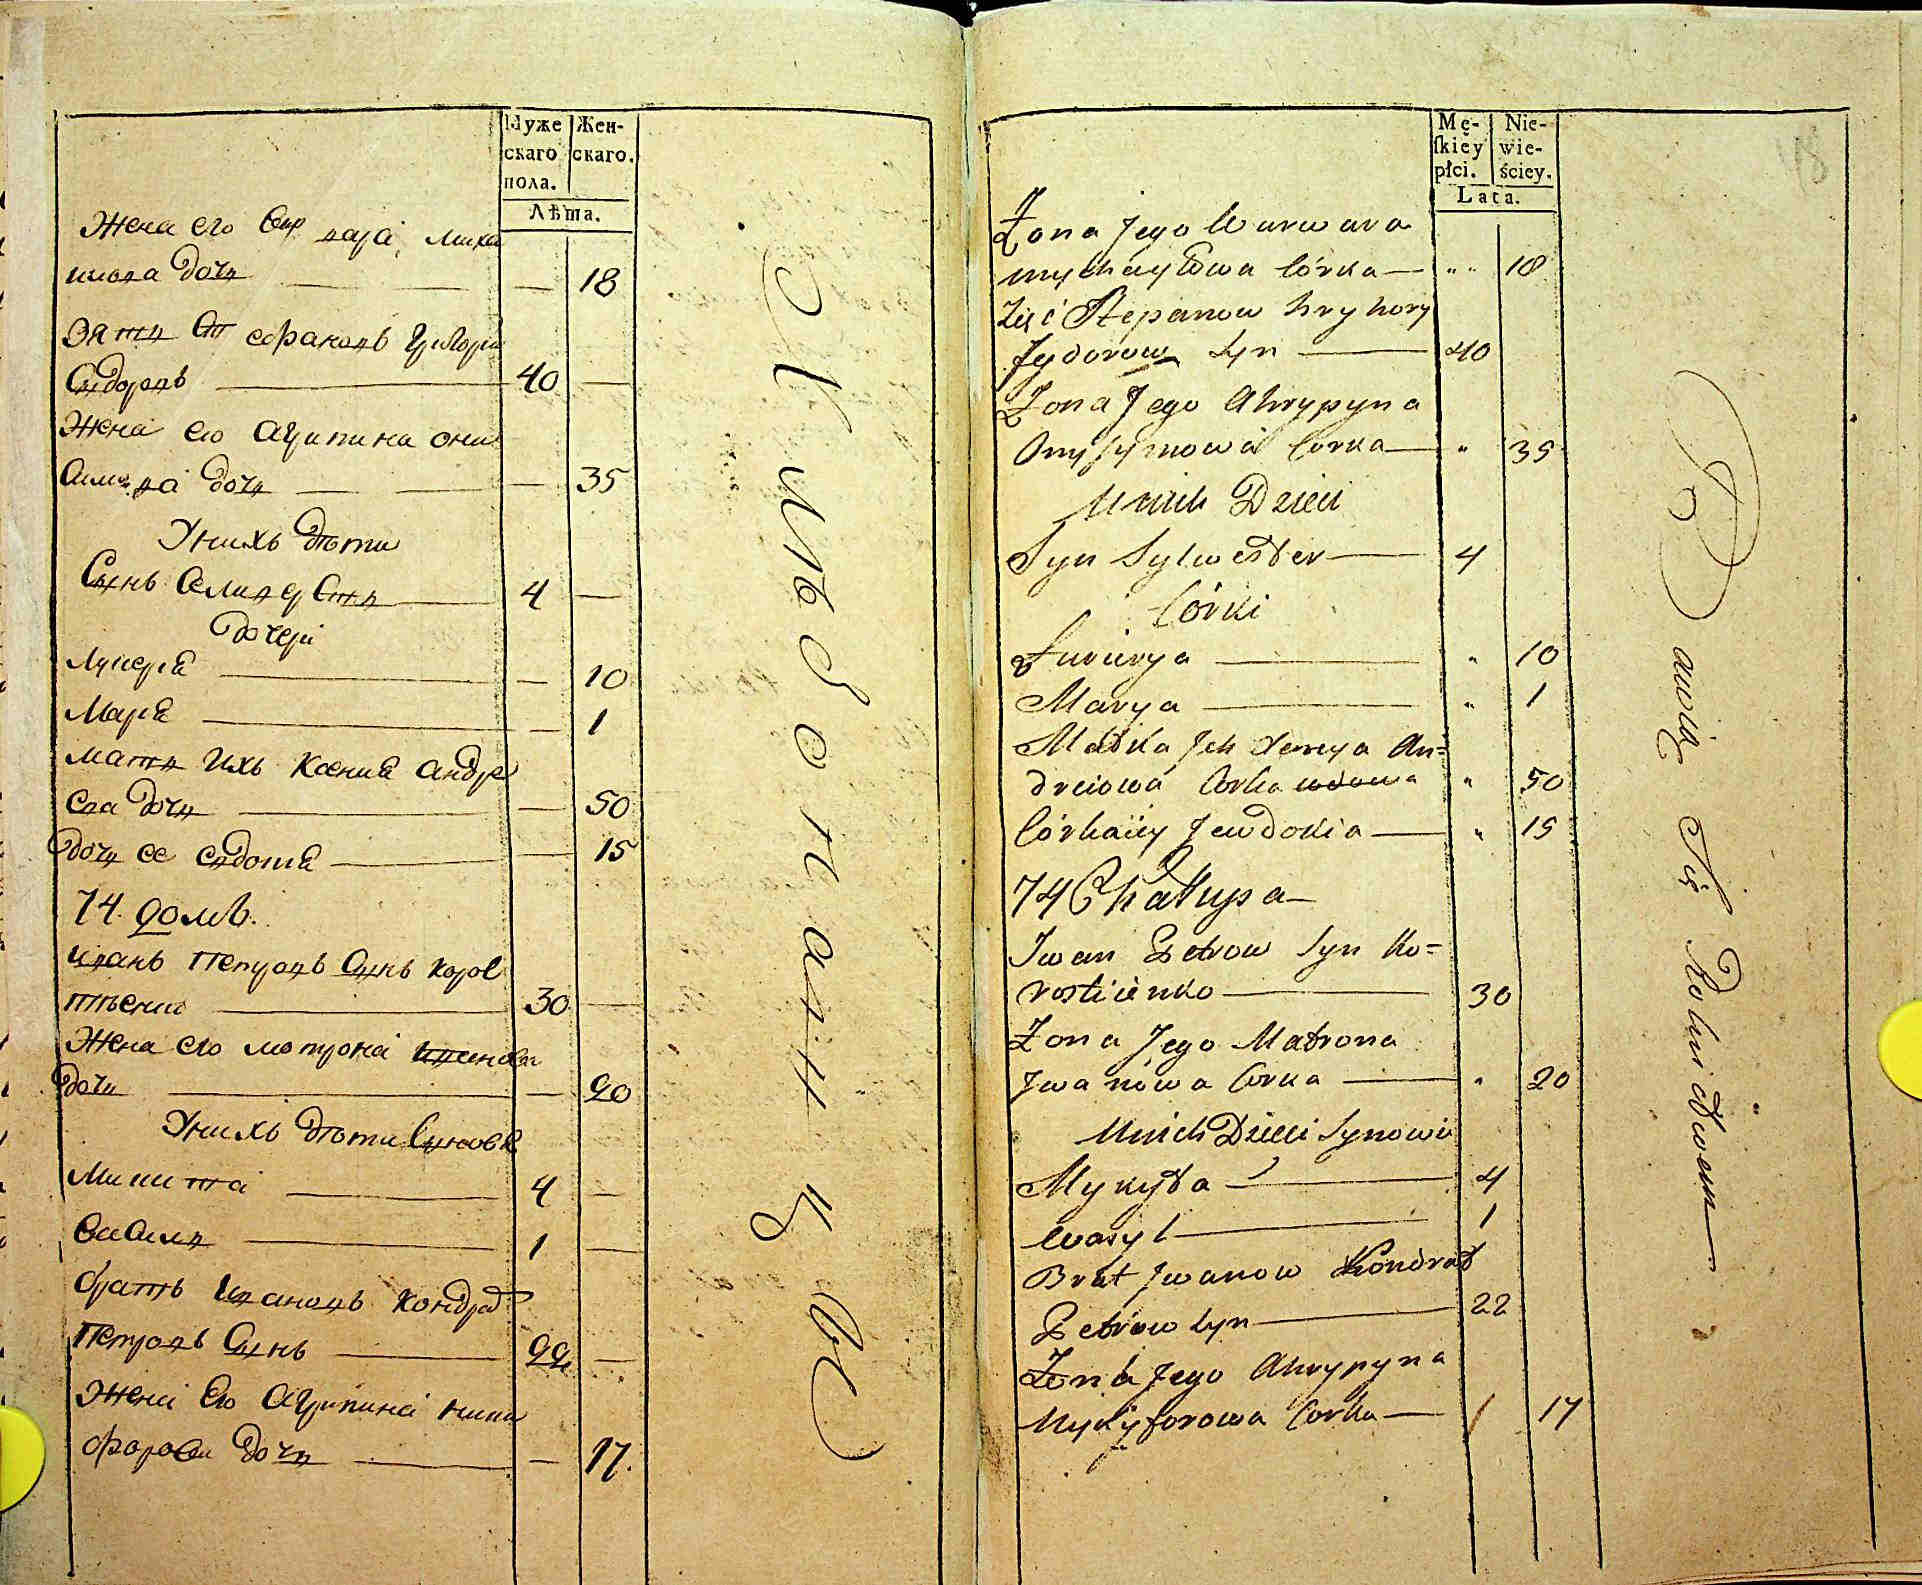 Муже
скаго
пола.
Жен-
скаго.
Лѣта.
Жена его Варвара Миха
илова дочь — 18
Зять Степановъ Григорій
Сидоровъ — 40
Жена его Агрипина Они
симова дочь — 35
У нихъ дѣти
Сынъ Селивестръ — 4
дочери
Лукерія — 10
Марія — 1
мать ихъ Ксенія Андре
ева дочь — 50
дочь ее Евдокія — 15
74. домъ.
Иванъ Петровъ Сынъ Корос
тѣенко — 30
Жена его Мотрона Иванова
дочь — 20
У нихъ дѣти Сыновья
Микита — 4
Василь — 1
братъ Ивановъ Кондрат
Петровъ Сынъ — 22
Жена его Агрипина Ники
форова дочь — 17.
Хлѣбопашцы
Mę-
ſkiéy
płci.
Nie-
wie-
ściey.
Lata.
Żona Jego Warwara
Mychayłowa Córka — „ „ 18
Zięć Stepanow Hryhory
Sydorow Syn — 40
Żona Jego Ahrypyna
Onysymowa Corka — „ 35
U nich Dzieci
Syn Sylwester — 4
Córki
Łukierya — „ 10
Marya — „ 1
Matka Jch Xenya An=
dreiowa Corka wdowa „ 50
Córka iiey Jewdokia — „ 15
74 Chałupa
Jwan Petrow Syn Ko=
rostieienko — 30
Żona Jego Matrona
Jwanowa Corka — „ 20
U nich Dzieci Synowie
Mykyta — 4
Wasyl — 1
Brat Jwanow Kondrat
Petrow Syn — 22
Żona Jego Ahrypyna
Nykyforowa Corka — 17
Bawią Się Rolnictwem